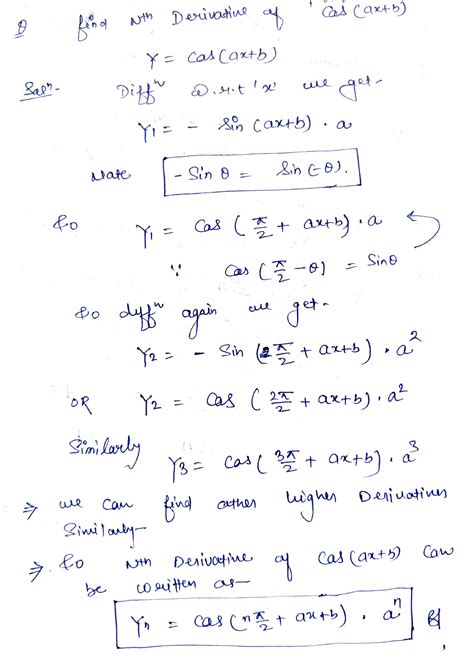 Q find Nth Derivative of Cos (ax+b)
Y = cos(ax+b)
Solⁿ- Diffⁿ w.r.t 'x' we get-
Y₁ = - Sin (ax+b) . a
Note - Sin θ = Sin (-θ).
So Y₁ = Cos (π/2 + ax+b) . a
∵ Cos (π/2 - θ) = Sinθ
So diffⁿ again we get-
Y₂ = - Sin (π/2 + ax+b) . a²
OR Y₂ = Cos (2π/2 + ax+b) . a²
Similarly Y₃ = cos (3π/2 + ax+b) . a³
⇒ we can find other higher Derivatives
Similarly-
⇒. So Nth Derivative of Cos (ax+b) Can
be written as-
Yₙ = cos (nπ/2 + ax+b) . aⁿ